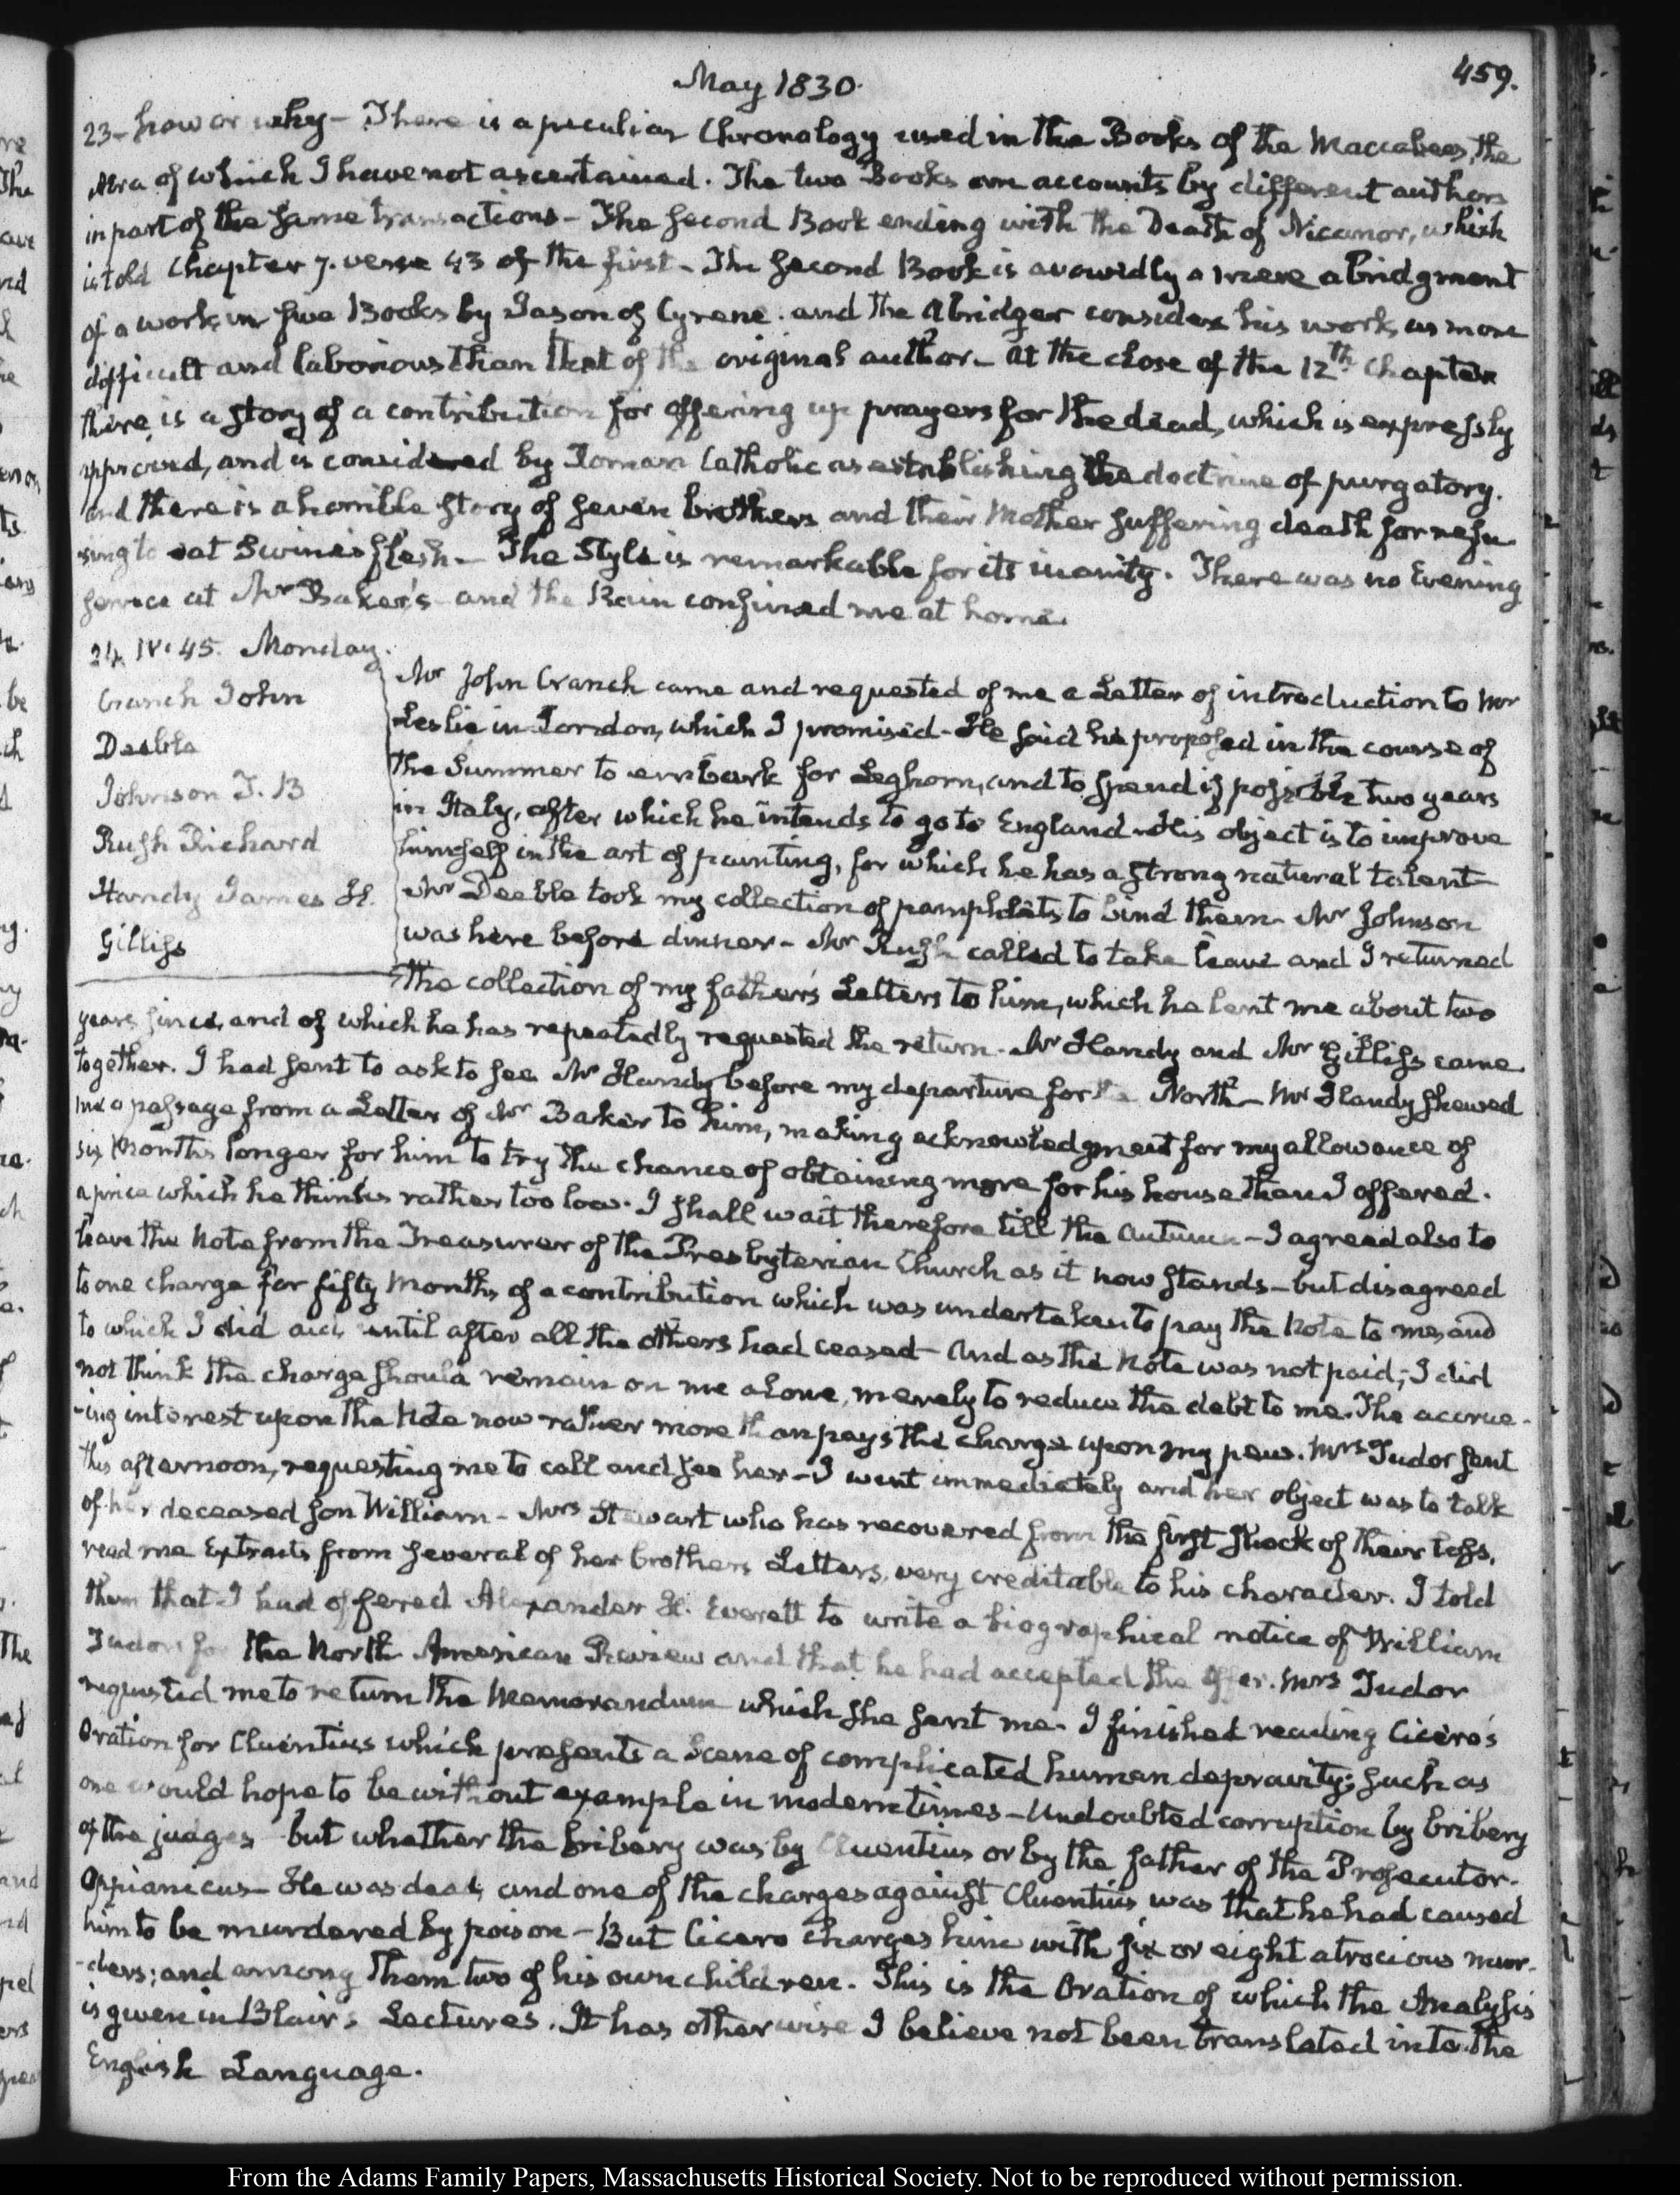 May 1830.
459.
23- how or why — There is a peculiar Chronology used in the Books of the Maccabees, the
Æra of which I have not ascertained. The two Books are accounts by different authors
in part of the same transactions — The Second Book ending with the Death of Nicanor, which
is told Chapter 7. verse 43 of the first — The Second Book is avowedly a mere abridgment
of a work in five Books by Jason of Cyrene. and the abridger considers his work as more
difficult and laborious than that of the original author — At the close of the 12th Chapter
there is a story of a contribution for offering up prayers for the dead, which is expressly
approved, and is considered by Roman Catholic as establishing the doctrine of purgatory.
and there is a horrible story of seven brothers and their Mother suffering death for refu
sing to eat Swine's flesh — The Style is remarkable for its inanity. There was no Evening
service at Mr Baker's and the Rain confined me at home.
24. IV. 45. Monday.
Cranch John
Deeble
Johnson J. B
Rush Richard
Handy James H.
Gilliss
Mr John Cranch came and requested of me a Letter of introduction to Mr
Leslie in London, which I promised — He said he proposed in the course of
the Summer to embark for Leghorn, and to spend if possible two years
in Italy, after which he intends to go to England — His object is to improve
himself in the art of painting, for which he has a strong natural talent
Mr Deeble took my collection of pamphlets to bind them — Mr Johnson
was here before dinner — Mr Rush called to take leave and I returned
the collection of my father's Letters to him, which he lent me about two
years since, and of which he has repeatedly requested the return. Mr Handy and Mr Gilliss came
together. I had sent to ask to see Mr Handy before my departure for the North — Mr Handy shewed
me a passage from a Letter of Mr Baker to him, making acknowledgment for my allowance of
six Months longer for him to try the chance of obtaining more for his house than I offered.
a price which he thinks rather too low. I shall wait therefore till the Autumn — I agreed also to
leave the Note from the Treasurer of the Presbyterian Church as it now stands — but disagreed
to one charge for fifty Months of a contribution which was undertaken to pay the Note to me, and
to which I did aid, until after all the others had ceased — And as the Note was not paid; I did
not think the charge should remain on me alone, merely to reduce the debt to me. The accrue-
-ing interest upon the Note now rather more than pays the charge upon my pew. Mrs Tudor sent
this afternoon, requesting me to call and see her — I went immediately and her object was to talk
of her deceased son William — Mrs Stewart who has recovered from the first shock of their loss,
read me Extracts from several of her brothers Letters, very creditable to his character. I told
them that I had offered Alexander H. Everett to write a biographical notice of William
Tudor for the North American Review and that he had accepted the offer. Mrs Tudor
requested me to return the Memorandum which she sent me. I finished reading Cicero's
Oration for Cluentius which presents a Scene of complicated human depravity; such as
one would hope to be without example in modern times — Undoubted corruption by bribery
of the judges — but whether the bribery was by Cluentius or by the father of the Prosecutor.
Oppianicus — He was dead, and one of the charges against Cluentius was that he had caused
him to be murdered by poison — But Cicero charges him with six or eight atrocious mur-
-ders; and among them two of his own children. This is the Oration of which the Analysis
is given in Blair's Lectures. It has otherwise I believe not been translated into the
English Language.
From the Adams Family Papers, Massachusetts Historical Society. Not to be reproduced without permission.